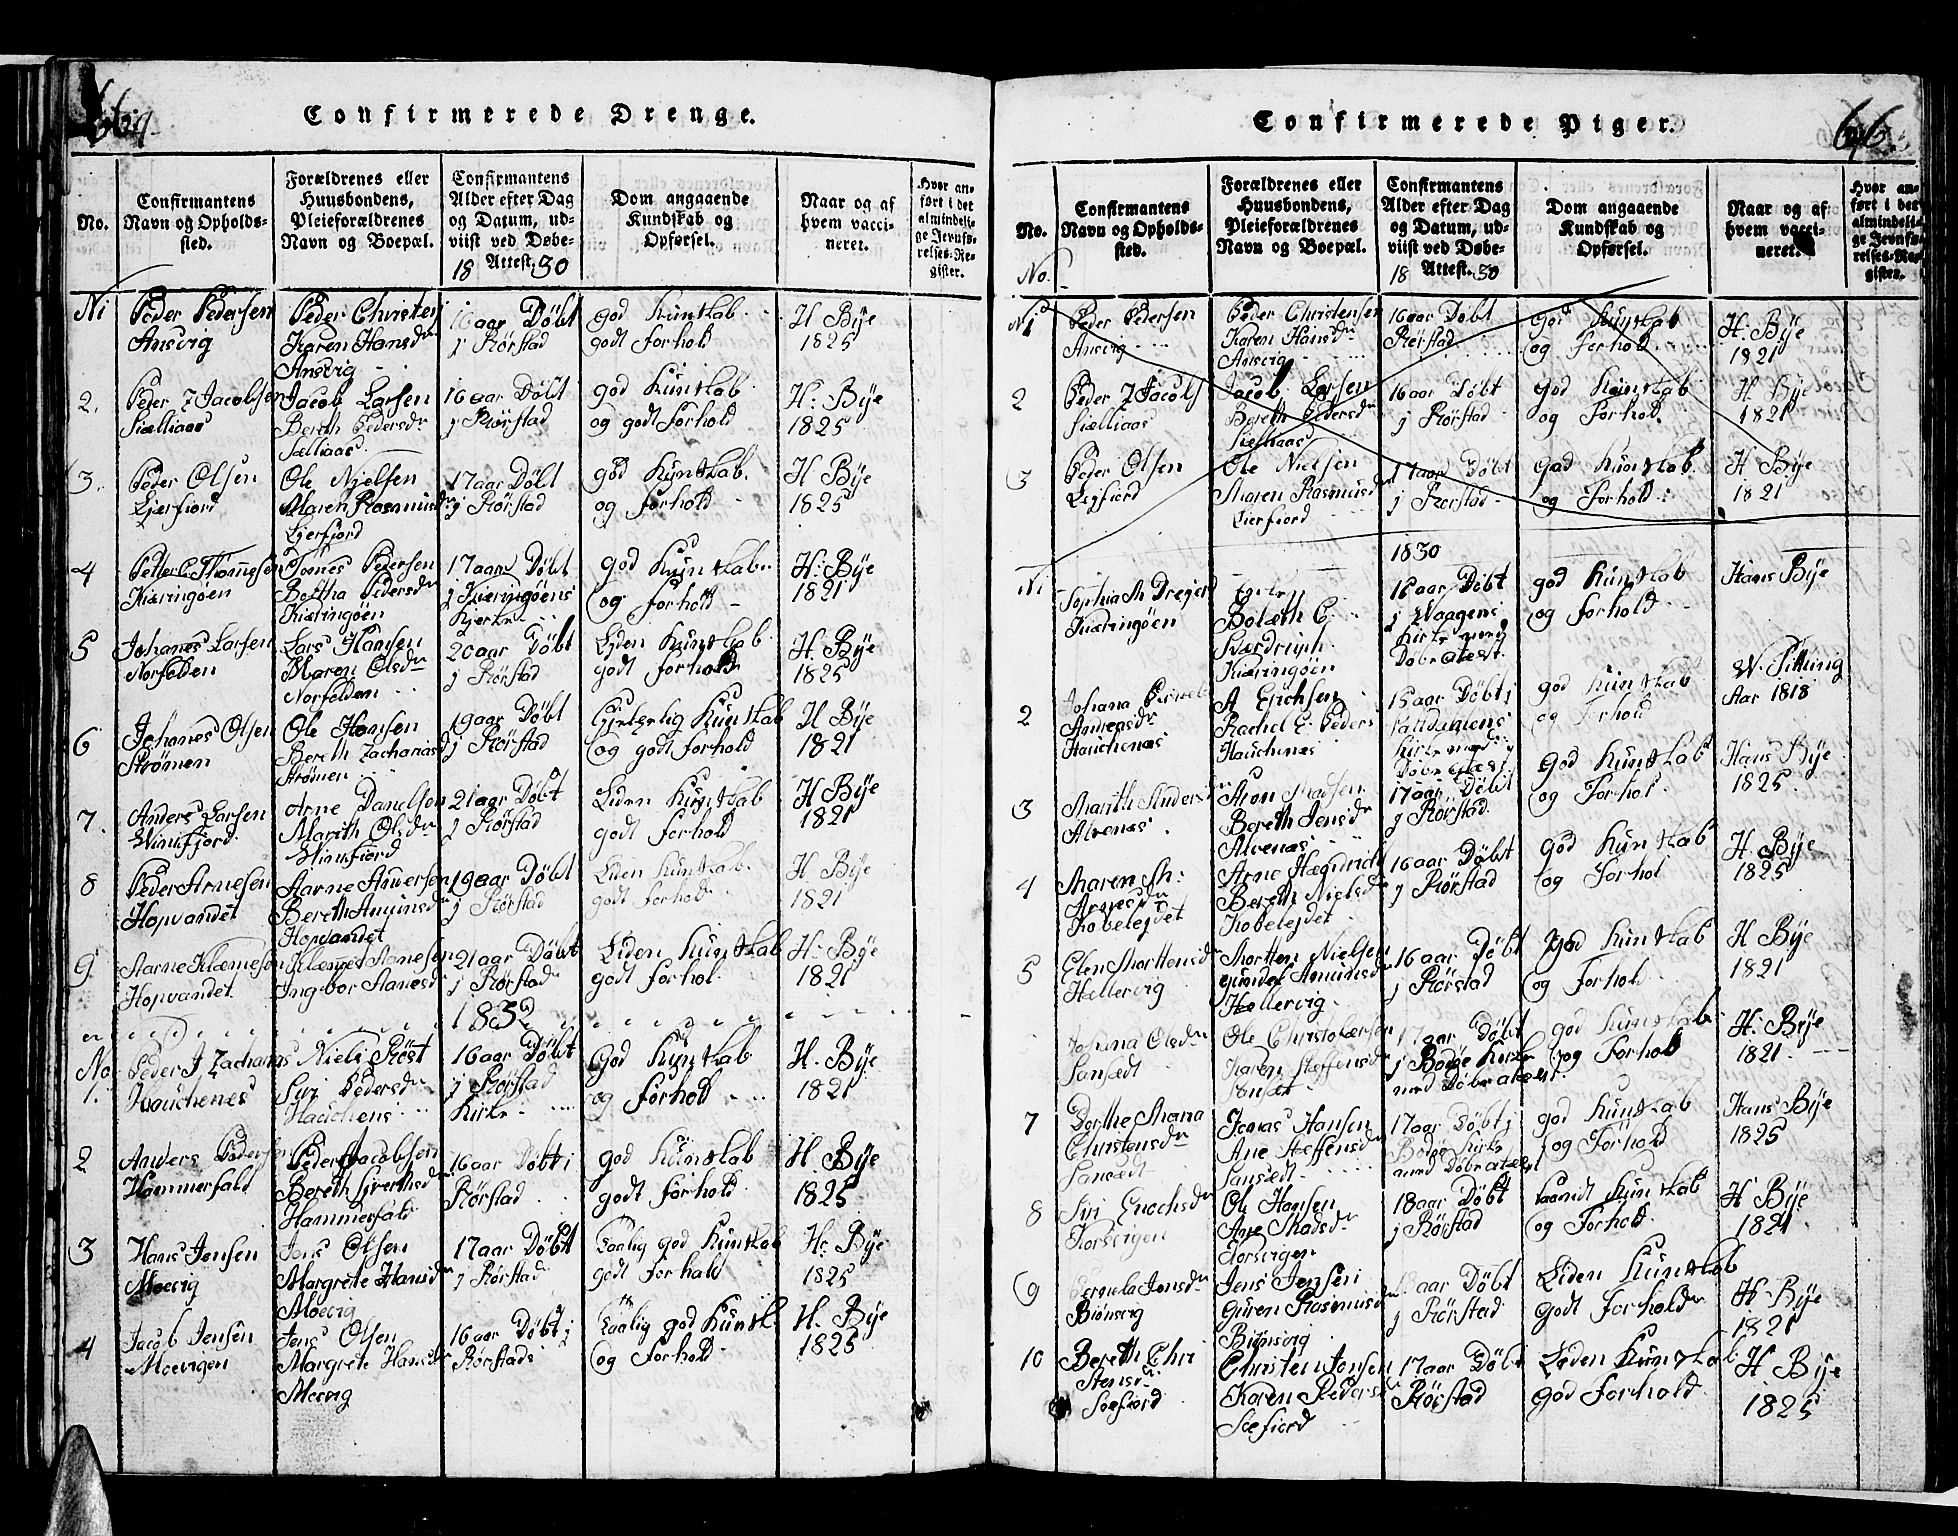 Confirmerede Drenge.
No.
Confirmantens
Navn og Opholds-
sted.
Forældrenes eller
Huusbondens,
Pleieforældrenes
Navn og Boepæl.
Confirmantens
Alder efter Dag
og Datum, ud-
viist ved Døbe-
Attest.
18 30
Dom angaaende
Kundskab og
Opførsel.
Naar og af
hvem vacci-
neret.
Hvor an-
ført i det
almindeli-
ge Jevnfø-
relses-Re-
gister.
Peder Pedersen
Ansvig
Peder Christen
Karen Hansdr
Ansvig
16 aar Döbt
j Rörstad
god Kunskab
godt forhold
H Bye
1825
2. Peder Z Jacobsen
Siælliaas
Jacob Larsen
Bereth Pedersdr
Sælliaas
16 aar Döbt
j Rörstad
god Kunskab
og godt forhold
H: Bye
1825
3. Peder Olsen
Ljerfiord
Ole Njelsen
Maren Rasmusdr
Ljerfjord
17 aar Döbt
j Rörstad
god Kunskab.
og forhold
H Bye
1825
4 Petter C Thommesen
Kiæringöen
Tömes Pedersen
Kiæringöen
17 aar Döbt
j Kieringöens
Kjerke
god Kunskab
og forhold
H: Bye
1821
5 Johanes Larsen
Norfolden
Lars Hansen
Maren Olsdr
Norfolden
20 aar Döbt
j Rörstad
Liden Kunskab
godt forhold
H: Bye
1825
6 Johanes Olsen
Strömen
Ole Hansen
Bereth Zacharias
Strömen
19 aar Döbt
j Rörstad
Kunskab
og godt forhold
H Bye
1821
7. Anders Larsen
Vinnfjord
Arne Danelsen
Marith Olsdr
Vinnfiord
21 aar Döbt
j Rörstad
Liden Kunskab
godt forhold
H Bye
1821
8 Peder Arnesen
Hopvandet
Aarne Andersen
Bereth
Hopvandet
19 aar Döbt
j Rörstad
Liden Kunskab
godt forhold
H Bye
1821
9 Aarne Klæmesen
Hopvandet
Ingebor
21 aar Döbt
j Rörstad
Liden Kunskab
godt forhol
H: Bye
1821
No
1. Peder J Zacharias
Hauchenes
Niels Röst
Siri Pedersdr
Hauchens
16 aar Döbt
j Rörstad
Kirke
God Kunskab
og forhold
H. Bye
1821
2 Anders Pedersen
Hammerfald
Peder Jacobsen
Bereth Siverthsdr
Hammerfald
16 aar Döbt j
Rörstad
god Kunskab
godt forhold
H. Bye
1825
3 Hans Jensen
Moevig
Jens Olsen
Margrete Hansdr
Moevig
17 aar Döbt
j Rörstad
Taalig god Kunskab
godt forhold
H: Bye
1825
4 Jacob Jensen
Moevigen
Jens Olsen
Margrete Hansdr
Moevig
16 aar Döbt j
Rörstad
Taalig god Kunsk.
og forhold
H. Bye
1825
Confirmerede Piger.
66.
No.
Confirmantens
Navn og Opholds-
sted.
Forældrenes eller
Huusbondens,
Pleieforældrenes
Navn og Boepæl.
Confirmantens
Alder efter Dag
og Datum, ud-
viist ved Døbe-
Attest.
18 30
Dom angaaende
Kundskab og
Opførsel.
Naar og af
hvem vacci-
neret.
Hvor an-
ført i det
almindeli-
ge Jevnfø-
relses-Re-
gister.
No.
Peder Pedersen
Ansvig
Peder Christensen
Karen Hansdr
Ansvig
16 aar Döbt
Rörstad
god Kunskab
og Forhold
H: Bye
1821
2 Peder Z Jacobs
Siælliaas
Jacob Larsen
Bereth Pedersdr
Siælliaas
16 aar Döbt
j Rörstad
god Kunskab
og Forhold.
H. Bye
1821
3 Peder Olsen
Leyfiord
Ole Nielsen
Maren Rasmusdr
Lierfiord
17 aar Döbt
j Rörstad
god Kunskab
og Forhold
H Bye
1821
1830
Sophia M Dreyer
Kiæringöen
Kiæringöen
16 aar Döbt
j Vaagens
Kirke med
Döbe atest.
god Kunskab
og forhold
Hans Bye
2 Johana
Andreasdr
Hauchenæs
A Erichsen
Rachel E. Peders
Hauchenæs
15 aar Döbt j
Kirke med
Döbe atest
god Kunskab
og Forhold
Aar 1818
3 Marith Anders
Alvenæs
Aron Madsen
Bereth Jensdr
Alvenæs
17 aar Döbt
j Rörstad
God Kunskab
og Forhol.
Hans Bye
1825
4 Maren M:
Arnesdr
Kobelejdet
Arne
Bereth Nielsdr
Kobelejdet
16 aar Döbt
j Rörstad
God Kunskab
og Forhol
H. Bye
1825
5 Elen Mortensdr
Hællervig
Morten Nielsen
Hællervig.
16 aar Döbt
j Rörstad
god Kunskab
og Forhold
H Bye
1821
Johana Olsdr
Sansædt
Ole Christofærsen
Karen Steffensdr
Sansædt
17 aar Döbt
j Bodöe Kirke
med Döbe atæst.
god Kunskab
og Forhold
H: Bye
1821
7 Dorthe Maria
Christensdr
Sansædt
Jonas Hansen
Ane Steffensdr
Sansædt
17 aar Döbt j
Bodöe Kirke
med Döbe atæst
god Kunskab
og Forhold
Hans Bye
1825
8 Siri Enochsdr
Korsvigen
Ole Hansen
Ane Madsdr
Korsvigen
18 aar Döbt
j Rörstad
Kunskab
og Forhold
H Bye
1821
9 Pernela Jonsdr
Biönsvig
Jens Jensen
Guren Rasmusdr
Biönsvig
aar Döbt
j Rörstad
Liden Kunskab
godt forhold
H. Bye
1821
10 Bereth Chri
stensdr
Soefiord
Christen Jonsen
Karen Pedersdr
Soefiord
17 aar Döbt
Rörstad
Leden Kunskab
god Forhold
H. Bye
1825